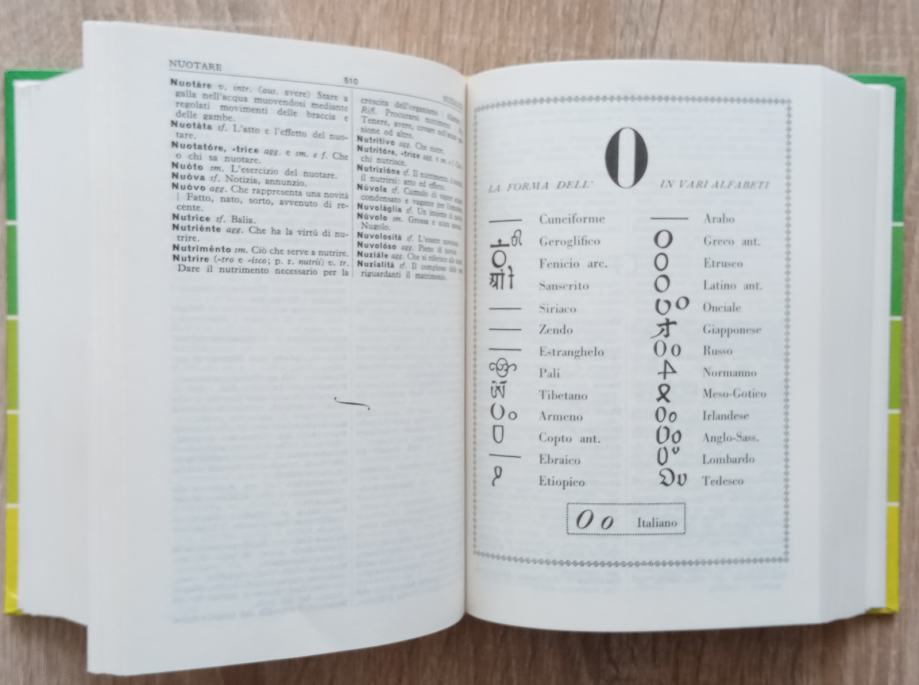 NUOTARE
510
Nuotàre v. intr. (aus. avere) Stare a
galla nell'acqua muovendosi mediante
regolati movimenti delle braccia e
delle gambe.
Nuotàta sf. L'atto e l'effetto del nuo-
tare.
Nuotatóre, -trice agg. e sm. e f. Che
o chi sa nuotare.
Nuòto sm. L'esercizio del nuotare.
Nuòva sf. Notizia, annunzio.
Nuòvo agg. Che rappresenta una novità
| Fatto, nato, sorto, avvenuto di re-
cente.
Nutrice sf. Balia.
Nutriènte agg. Che ha la virtú di nu-
trire.
Nutriménto sm. Ciò che serve a nutrire.
Nutrire (-tro e -isco; p. r. nutrii) v. tr.
Dare il nutrimento necessario per la
crescita dell'organismo
Rifl. Procurarsi nutrimento
Tenere, avere, covare nell'
sione od altro.
Nutritivo agg. Che nutre.
Nutritóre, -trice agg. e sm. e f. Che
chi nutrisce.
Nutrizióne sf. Il nutrimento, il
il nutrirsi: atto ed effetto.
Núvola sf. Cumulo di vapore
condensato e vagante per
Nuvolàglia sf. Un insieme di
Núvolo sm.
Nugolo.
Nuvolosità sf. L'essere nuvoloso.
Nuvolóso agg. Pieno di nuvole.
Nuziàle agg. Che si riferisce alle nozze
Nuzialità sf. Il complesso
riguardanti il matrimonio.
LA FORMA DELL' O IN VARI ALFABETI
Cuneiforme
Geroglifico
Fenicio arc.
Sanscrito
Siriaco
Zendo
Estranghelo
Pali
Tibetano
Armeno
Copto ant.
Ebraico
Etiopico
Arabo
O Greco ant.
O Etrusco
O Latino ant.
Onciale
Giapponese
O o Russo
Normanno
Meso-Gotico
Oo Irlandese
Oo Anglo-Sass.
Lombardo
Tedesco
O o Italiano